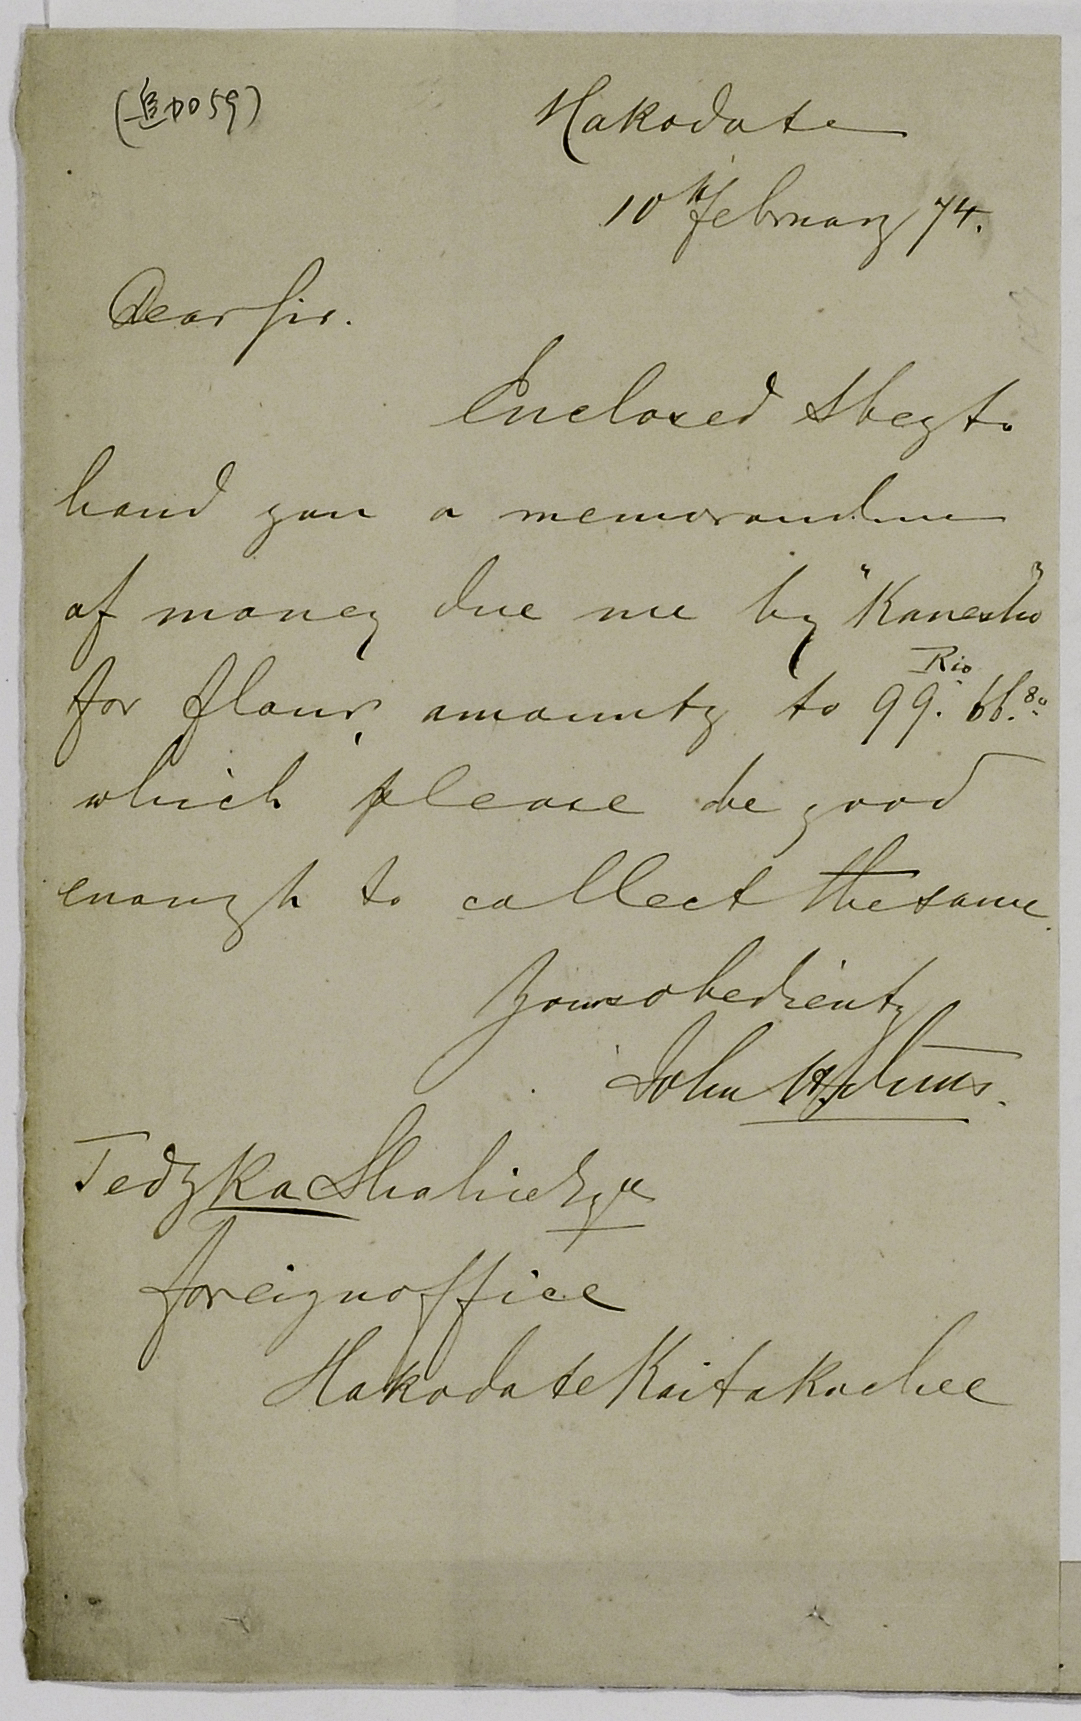 (追加059)
Hakodate
10th February 74.
Dear Sir.
Enclosed I beg to
hand you a memorandum
of money due me by "Kanesho"
for flour, amountg to 99. Rio 66.80
which please be good
enough to collect the same.
Yours obediently
John
Tedzka Esqre
foreign office
Hakodate Kaitakuchee